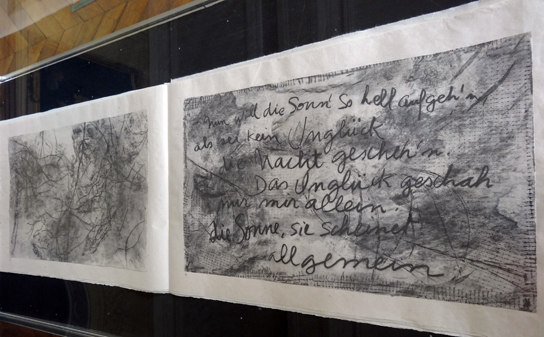 Nun will die Sonn' so hell aufgeh'n
als sei kein Unglück
die Nacht gescheh'n.
Das Unglück geschah
nur mir allein.
die Sonne, sie scheinet
allgemein